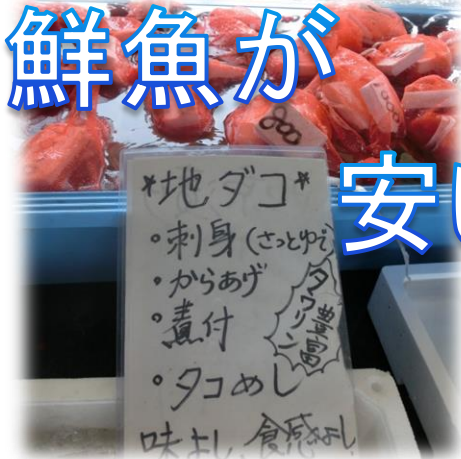 鮮魚が
800
800
安い
*地ダコ*
・刺身(さっとゆで)
・からあげ
・煮付
・タコめし
タウリン
豊富
味よし、食感よし